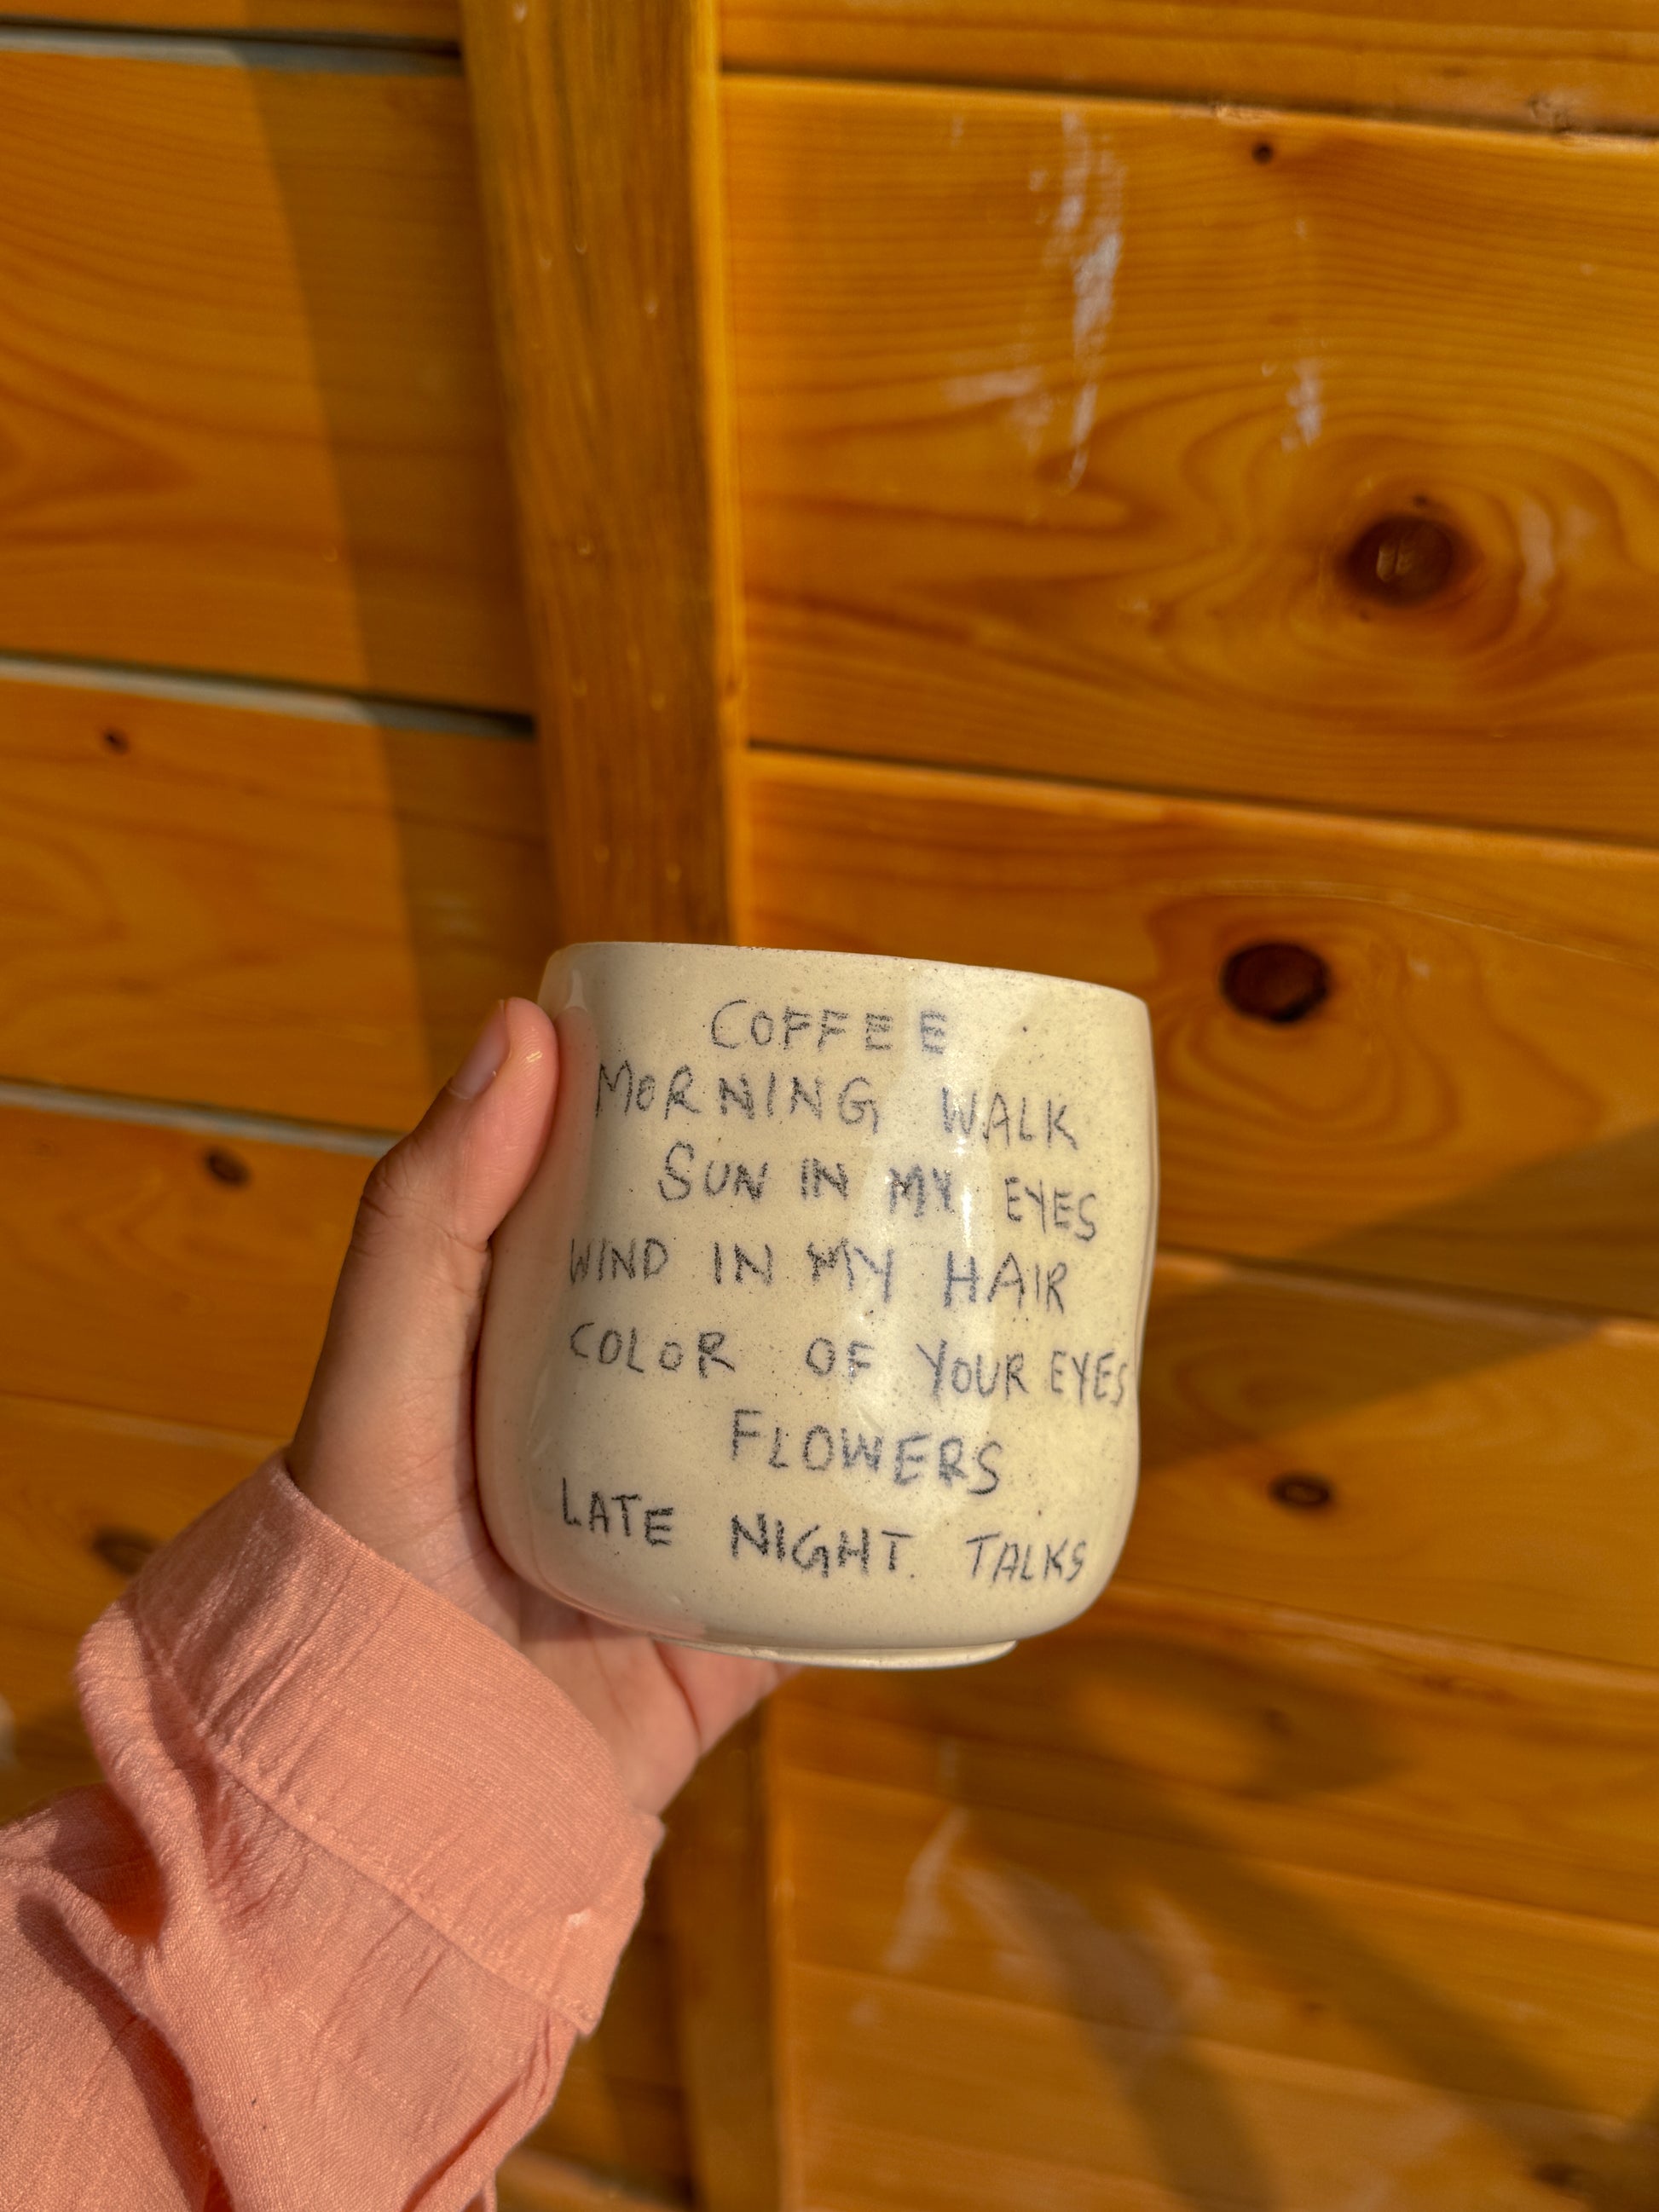 COFFEE
MORNING WALK
SUN IN MY EYES
WIND IN MY HAIR
COLOR OF YOUR EYES
FLOWERS
LATE NIGHT. TALKS